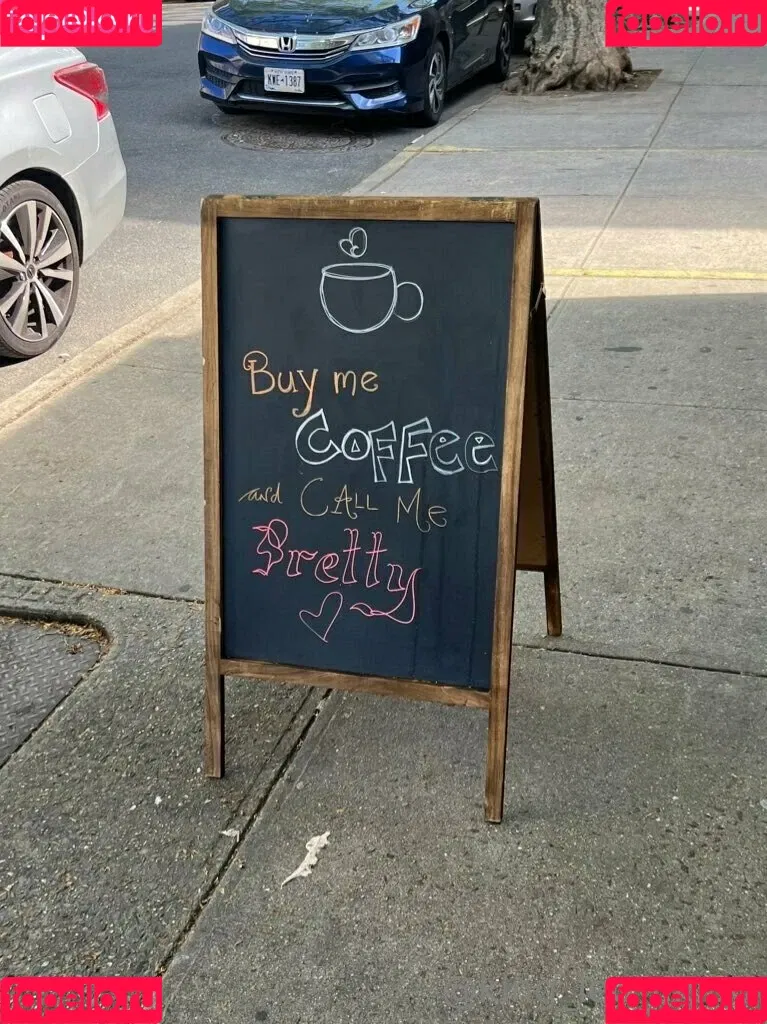 fapello.ru fapello.ru
KWE-1387
Buy me
COFFEE
and CALL Me
Pretty
fapello.ru fapello.ru